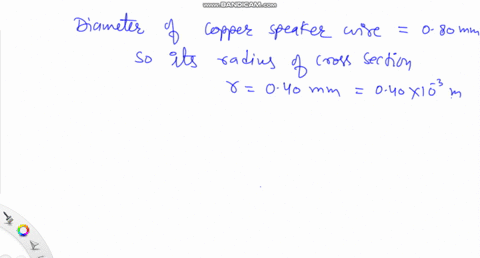 WWW.BANDICAM.COM
Diameter of copper speaker wire = 0.80 mm
So its radius of cross section
r = 0.40 mm = 0.40 × 10⁻³ m